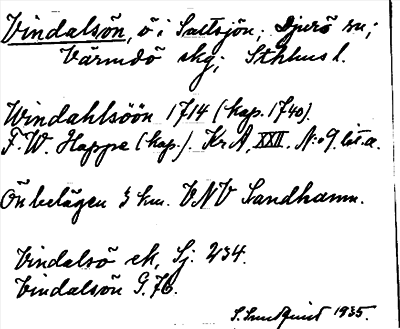 Vindalsön, ö i Saltsjön; Djurö sn;
Värmdö skg; Sthlms l.
Windahlsöön 1714 (kop. 1740).
F. W. Happe (kop.). Kr A, XXII. N:o 9. lit. a.
Ön belägen 3 km. VNV Sandhamn.
Vindalsö ek, Sj. 234.
Vindalsön G. 76.
S. Sundquist 1935.